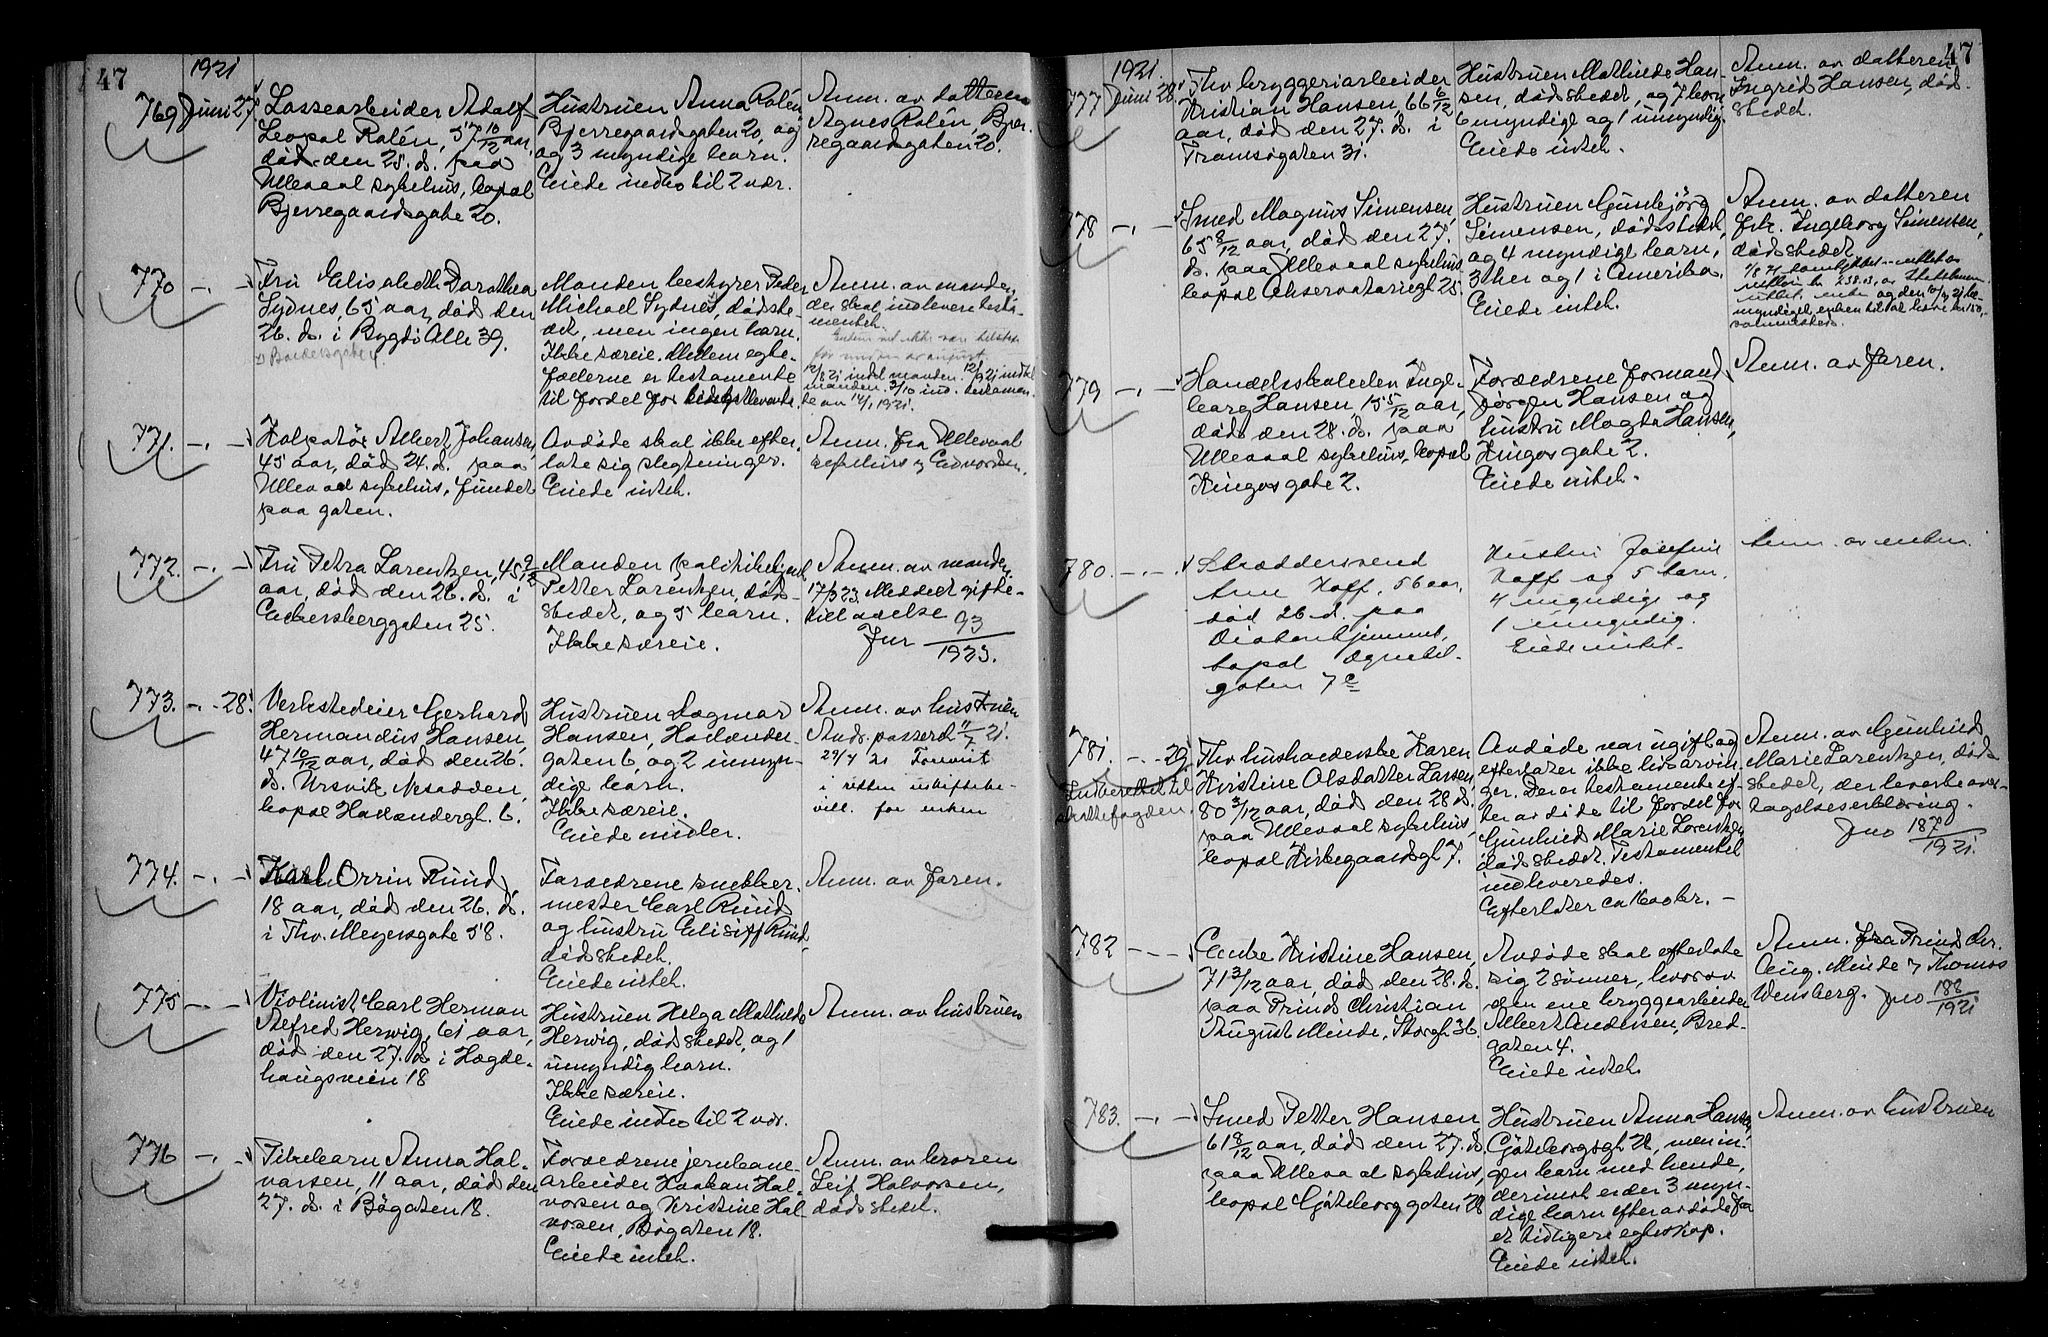 47
1921
769 Juni 27.
Lossearbeider Adolf
Leopol Rolén, 57 10/12 aar,
død den 25. ds. paa
Ullevaal sykehus, bopæl
Bjerregaardsgate 20.
Hustruen Anna Rolén
Bjerregaardsgaten 20, og
og 3 myndige barn.
Eiede indbo til 2 vær.
Anm. av datteren
Agnes Rolén, Bjer-
regaardsgaten 20.
770 -.-
Fru Elisabeth Dorothea
Sydnes, 65 aar, død den
26. ds. i Bygdø Alle 39.
Manden bestyrer Peder
Michael Sydnes, dødste-
det, men ingen barn.
Ikke særeie. Mellem egte-
fællerne er testamente
til fordel for
Anm. av manden,
der skal indlevere testa-
mentet.
12/8 21 indk. manden. 12/9 21 indk.
manden. 3/10 ind. testamen-
te av 14/1 1921.
771. -.-
Kolportør Albert Johansen,
45 aar, død 24. ds. paa
Ullevaal sykehus, fundet
paa gaten.
Avdøde skal ikke efter-
late sig slegtninger.
Eiede intet.
Anm. fra Ullevaal
sykehus v
772. -.-
Fru Petra Lorentzen, 45 9/12
aar, død den 26. ds. i
Eckersberggaten 25.
Manden politibetjent
Petter Lorentzen, død-
stedet, og 5 barn.
Ikke særeie.
Anm. av manden.
17/3 23 Meddelt gifte-
tilladelse
Jnr 93/1923.
773. -.- 28.
Verkstedeier Gerhard
Hermandius Hansen,
47 10/12 aar, død den 26.
ds. Ursvik Nesodden,
bopæl Hollændergt. 6.
Hustruen Dagmar
Hansen, Hollænder-
gaten 6, og 2 umyn-
dige barn.
Ikke særeie.
Eiede midler.
Anm. av hustruen
Andr. passerd 11/7 21.
29/7 21 Forevist
i retten uskiftebe-
vill. for enken
774. -.-
Karl Orrin Ruud,
18 aar, død den 26. ds.
i Thv. Meyersgate 58.
Forældrene snekker-
mester Carl Ruud
og hustru Elisiff Ruud,
dødstedet.
Eiede intet.
Anm. av faren.
775 -.-
Violinist Carl Herman
Alfred Herwig, 61 aar,
død den 27. ds. i Hægde-
haugsveien 18
Hustruen Helga Mathilde
Herwig, dødstedet, og 1
umyndig barn.
Ikke særeie.
Eiede indbo til 2 vær.
Anm. av hustruen
776 -.-
Pikebarn Anna Hal-
vorsen, 11 aar, død den
27. ds. i Bøgaten 18.
Forældrene jernbane-
arbeider Haakan Hal-
vorsen og Kristine Hal-
vorsen, Bøgaten 18.
Eiede intet.
Anm. av broren
Leif Halvorsen,
dødstedet.
47
1921.
777 Juni 28.
Fhv. bryggeriarbeider
Kristian Hansen, 66 6/12
aar, død den 27. ds. i
Tromsøgaten 31.
Hustruen Mathilde Han-
sen, dødstedet, og 7 barn
6 myndige og 1 umyndig.
Eiede intet.
Anm. av datteren
Ingrid Hansen, død-
stedet.
778 -.-
Smed Magnus Simensen,
65 8/12 aar, død den 27.
ds. paa Ullevaal sykehus
bopæl Observatoriegt 25.
Hustruen Gunbjörg
Simensen, dødstedet,
og 4 myndige barn,
3 her og 1 i Amerika.
Eiede intet.
Anm. av datteren
frk. Ingeborg Simensen,
dødstedet.
779 -.-
Handelsskoleelev Inge-
borg Hansen, 15 5/12 aar,
død den 28. ds. paa
Ullevaal sykehus, bopæl
Kingosgate 2.
Forældrene formand
Jörgen Hansen og
hustru Magda Hansen,
Kingosgate 2.
Eiede intet.
Anm. av faren.
780. -.-
Skræddersvend
Hoff, 56 aar,
død 26 d. paa
Diakonhjemmet,
bopæl
gaten 7 c
Hustru Josefine
Hoff og 5 barn.
4 myndige og
1 umyndig.
Eiede intet.
Anm. av enken.
781. -.- 29.
Indberettet til
skattefogden.
Fhv. husholderske Karen
Kristine Olsdatter Larsen,
80 3/12 aar, død den 28. ds.
paa Ullevaal sykehus,
bopæl Kirkegaardsgt 7.
Avdøde var ugift og
efterlater ikke livsarvin-
ger. Der er testamente ef-
ter avdøde til fordel for
Gunhild Marie Lorentzen
dødstedet. Testamentet
indleveredes.
Efterlater ca 1600 kr. -
Anm. av Gunhild
Marie Lorentzen, død-
stedet, der leverte over-
tagelseserklæring.
Jno 187/1921.
782 -.-
Enke Kristine Hansen,
71 3/12 aar, død den 28. ds.
paa Prinds Christian
August Minde, Storgt. 36.
Avdøde skal efterlate
sig 2 sönner, hvorav
den ene bryggearbeider
Albert Andersen, Bred-
gaten 4.
Eiede intet.
Anm. fra Prinds Chr.
Aug. Minde v Thomas
Wensberg. Jno 188/1921
783. -.-
Smed Petter Hansen,
61 8/12 aar, død den 27. ds.
paa Ullevaal sykehus,
bopæl Göteborggaten 28
Hustruen Anna Hansen,
Göteborggt 28, men in-
gen barn med hende,
derimot er der 3 myn-
dige barn efter avdøde fra
et tidligere egteskap.
Eiede intet.
Anm. av hustruen